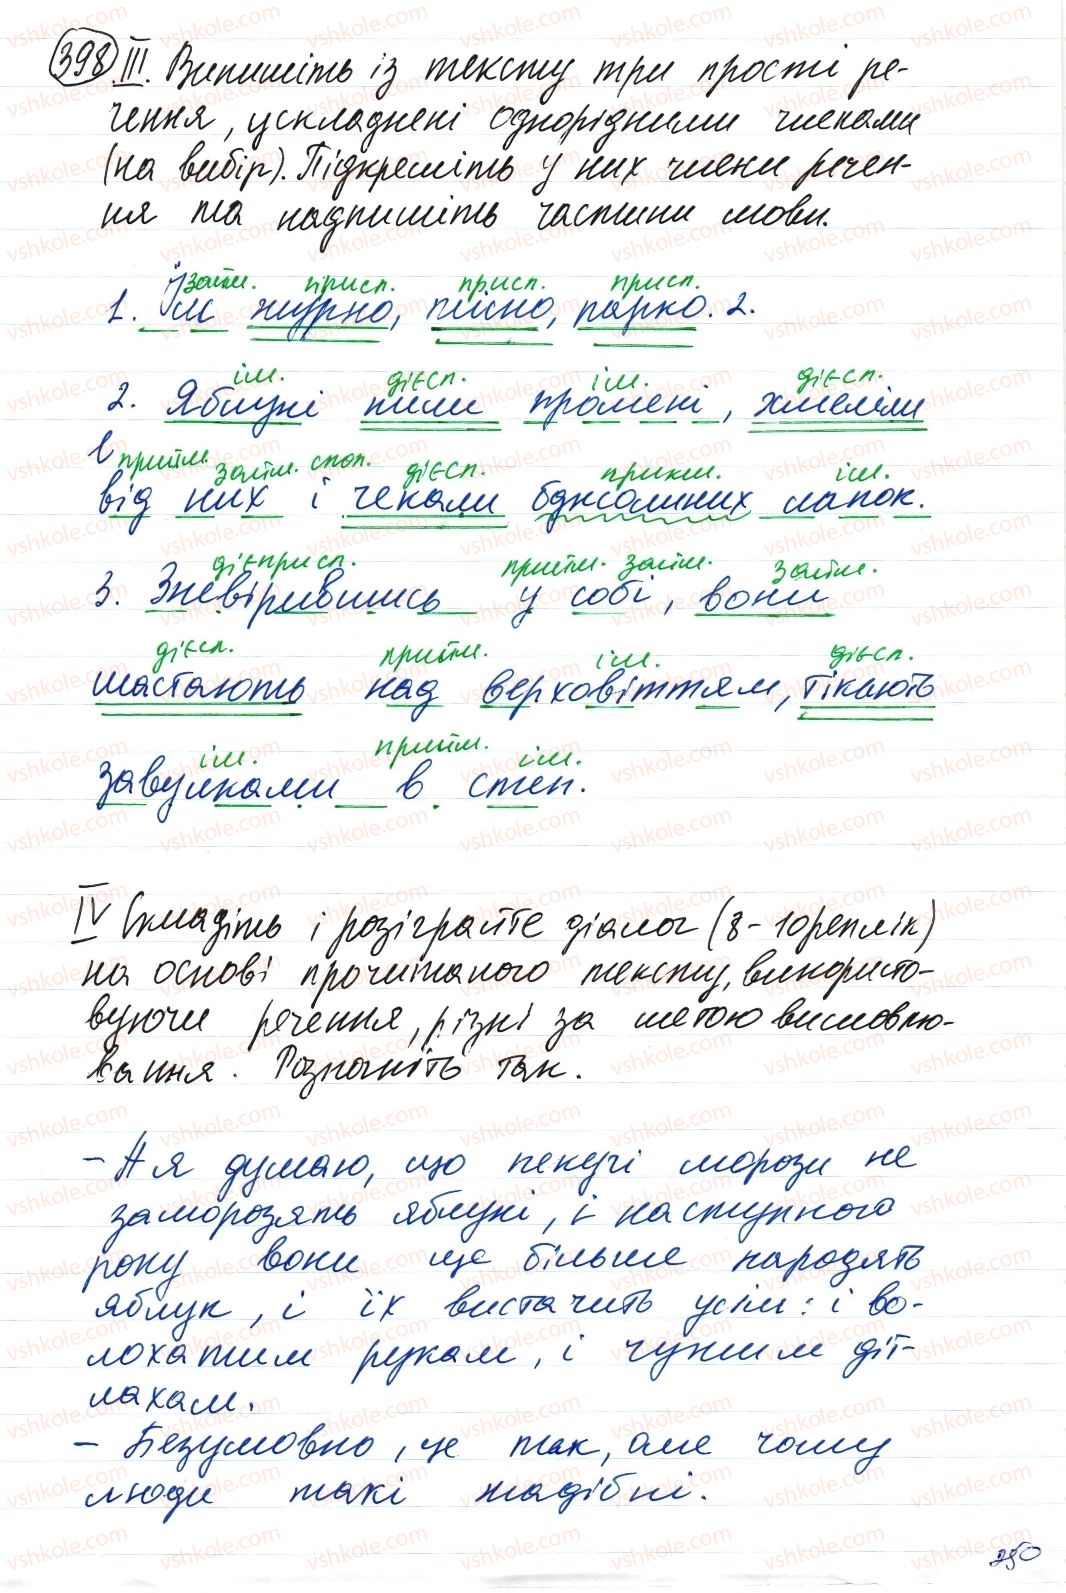 398 III. Випишіть із тексту три прості ре-
чення, ускладнені однорідними членами
(на вибір). Підкресліть у них члени речен-
ня та надпишіть частини мови.
займ. присл. присл. присл.
1. Їм журно, тісно, парко. 2.
ім. дієсл. ім. дієсл.
2. Яблуні пили промені, хмеліли
прийм. займ. спол. дієсл. прикм. ім.
від них і чекали бджолиних лапок.
дієприсл. прийм. займ. займ.
3. Зневірившись у собі, вони
дієсл. прийм. ім. дієсл.
шастають над верховіттям, тікають
ім. прийм. ім.
завулками в степ.
IV Складіть і розіграйте діалог (8-10 реплік)
на основі прочитаного тексту, використо-
вуючи речення, різні за метою висловлю-
вання. Розпочніть так.
- А я думаю, що пекучі морози не
заморозять яблуні, і наступного
року вони ще більше народять
яблук, і їх вистачить усім: і во-
лохатим рукам, і чужим діт-
лахам.
- Безумовно, це так, але чому
люди такі жадібні.
250